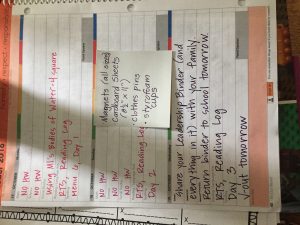 2018
No HW
No HW
Using Al's Bodies of Water - 4 square
RTS, Reading Log
Menu 6, Day 1
No HW
No HW
No HW
RTS, Reading Log
Day 2
Magnets (all sizes)
Cardboard Sheets
(8½" x 11")
Clothes pins
Styrofoam
cups
Share your Leadership Binder (and
everything in it) with your family.
Return binder to school tomorrow.
RTS, Reading Log
Day 3
V-out tomorrow